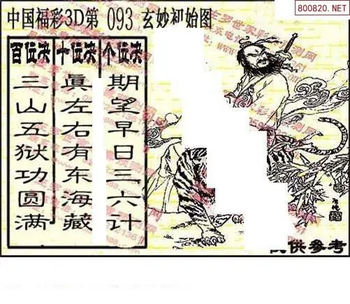 800820.NET
中国福彩3D第 093 玄妙初始图
百位决 十位决 个位决
期望早日三六计
真左右有东海藏
三山五狱功圆满
供参考